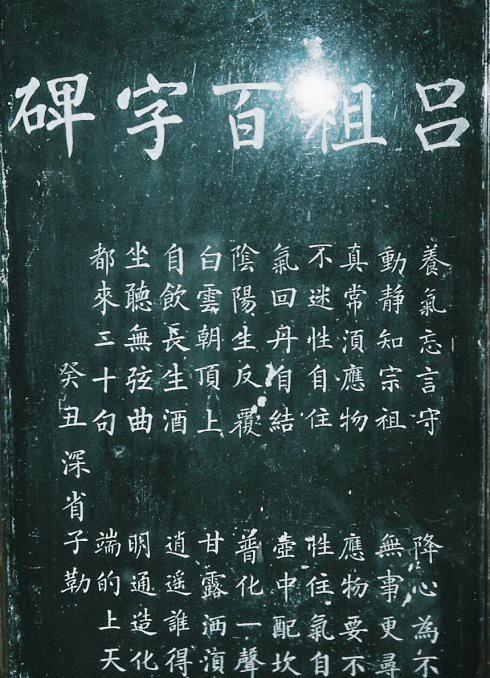 呂祖百字碑
養氣忘言守 降心為不
動靜知宗祖 無事更尋
真常湏應物 應物要不
不迷性自住 性住氣自
氣回丹自結 壺中配坎
陰陽生反覆 普化一聲
白雲朝頂上 甘露洒湏
自飲長生酒 逍遙誰得
坐聽無弦曲 明通造化
都來三十句 端的上天
癸丑深省子勒